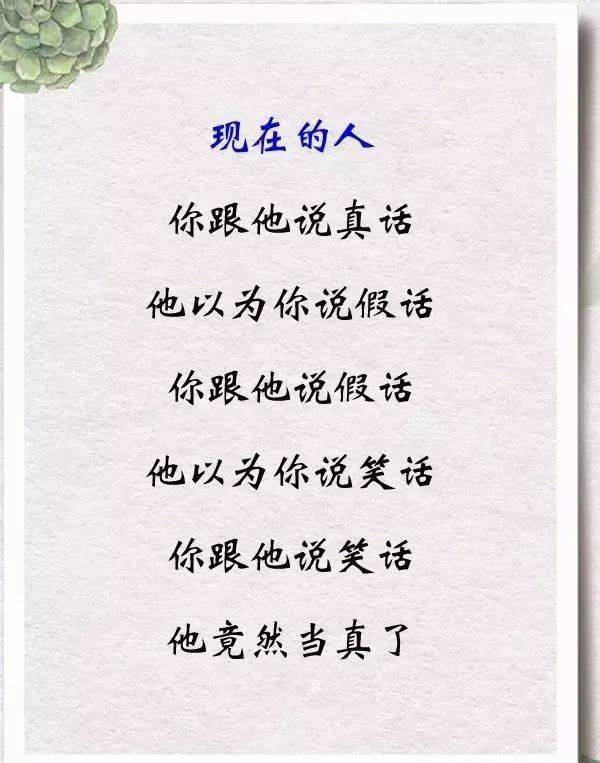 现在的人
你跟他说真话
他以为你说假话
你跟他说假话
他以为你说笑话
你跟他说笑话
他竟然当真了